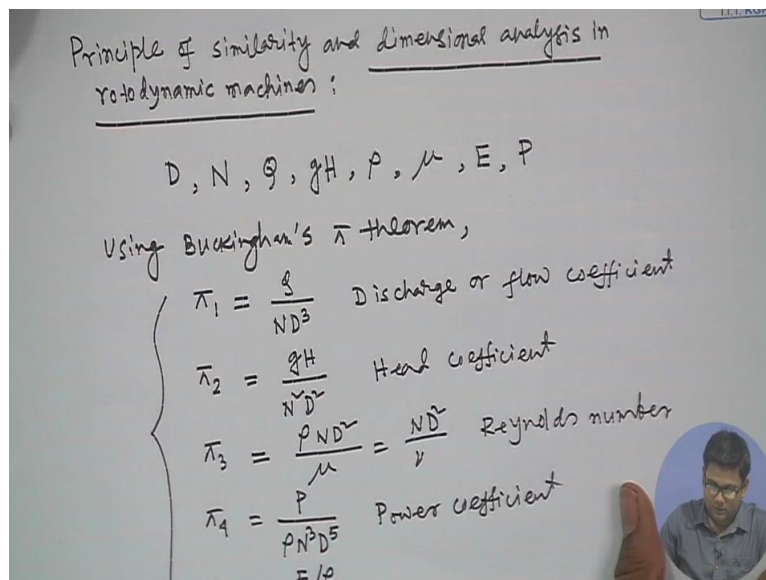 I.I.T. KGP
Principle of similarity and dimensional analysis in
rotodynamic machines :
D, N, Q, gH, ρ, μ, E, P
Using Buckingham's π theorem,
π₁ = Q/ND³ Discharge or flow coefficient
π₂ = gH/N²D² Head coefficient
π₃ = ρND²/μ = ND²/ν Reynolds number
π₄ = P/ρN³D⁵ Power coefficient
E/ρ